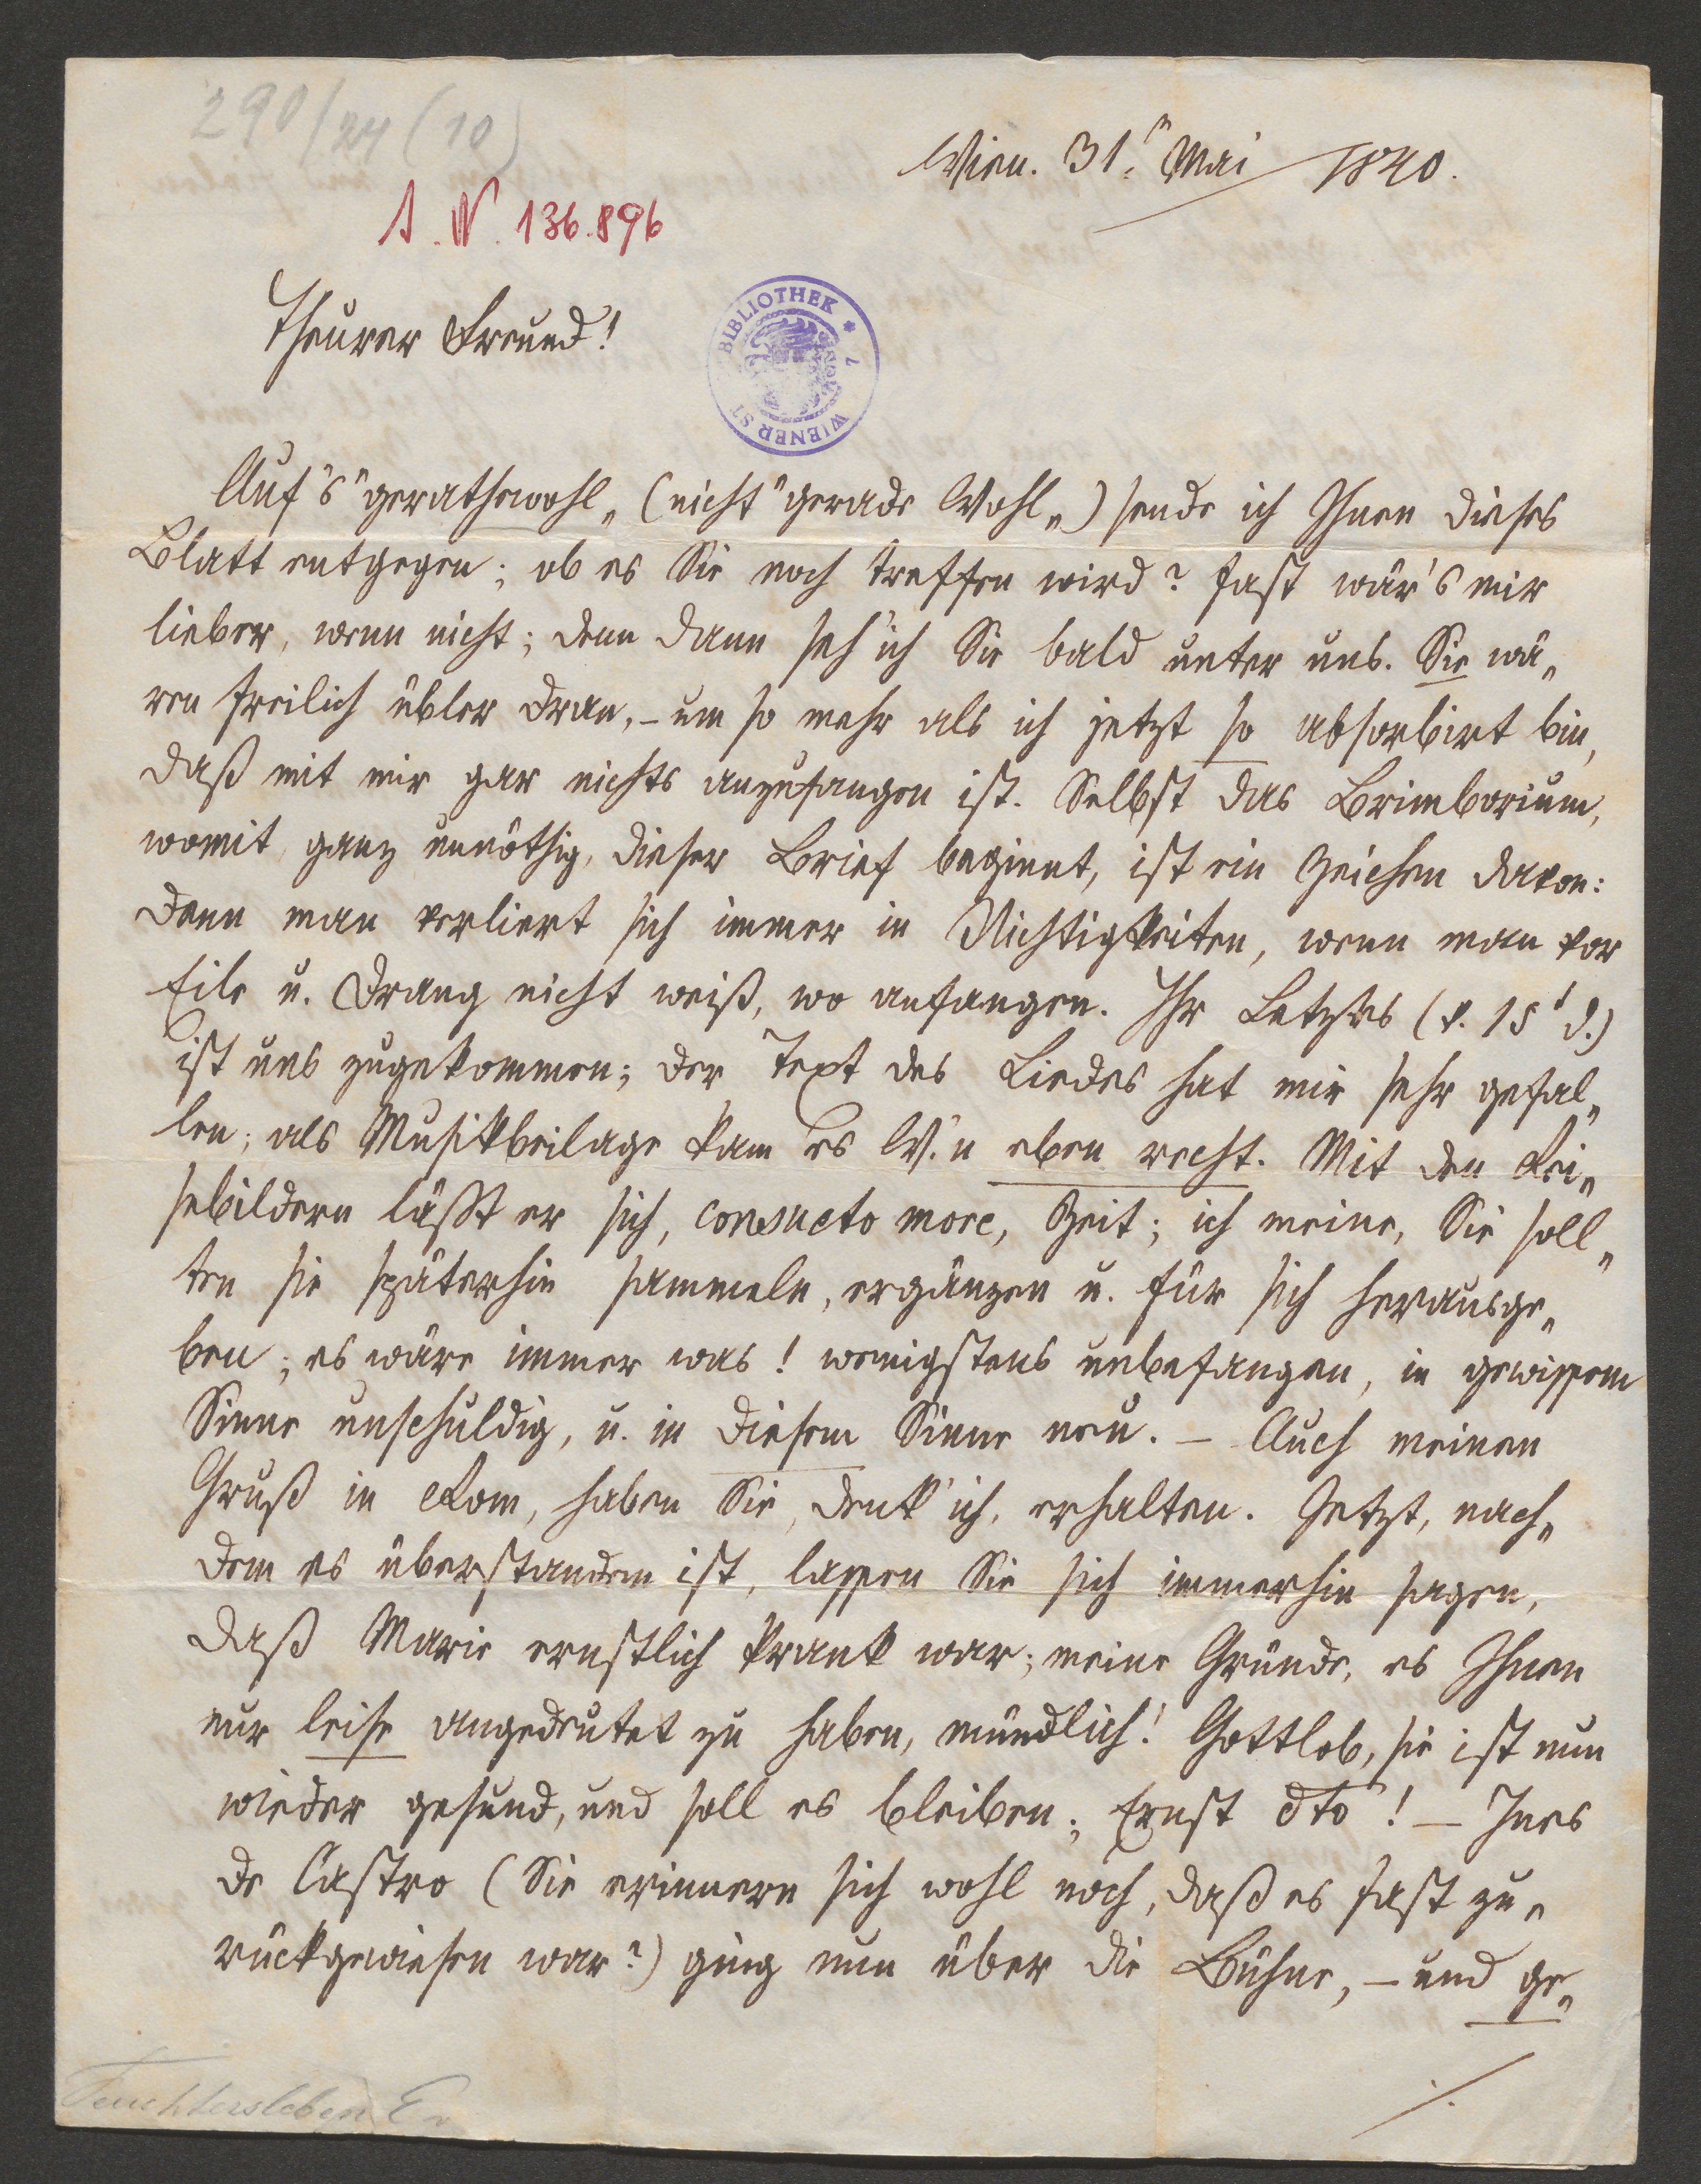 290/24 (10)
Wien. 31.n Mai 1840.
I. N. 136.896
BIBLIOTHEK * WIENER ST
Theurer Freund!
Auf's "gerathewohl„ (nicht "gerade Wohl„) sende ich Ihnen dieses
Blatt entgegen; ob es Sie noch treffen wird? fast wär's mir
lieber, wenn nicht; denn dann seh' ich Sie bald unter uns. Sie wä„
ren freilich übler dran, – um so mehr als ich jetzt so absorbirt bin,
daß mit mir gar nichts anzufangen ist. Selbst das Brimborium,
womit, ganz unnöthig, dieser Brief beginnt, ist ein Zeichen davon:
denn man verliert sich immer in Nichtigkeiten, wenn man vor
Eile u. Drang nicht weiß, wo anfangen. Ihr Letztes (v. 15t d.)
ist uns zugekommen; der Text des Liedes hat mir sehr gefal„
len; als Musikbeilage kam es W.n eben recht. Mit den Rei„
sebildern läßt er sich, consueto more, Zeit; ich meine, Sie soll„
ten sie späterhin sammeln, ergänzen u. für sich herausge„
ben; es wäre immer was! wenigstens unbefangen, in gewissem
Sinne unschuldig, u. in diesem Sinne neu. – Auch meinen
Gruß in Rom, haben Sie, denk' ich, erhalten. Jetzt, nach„
dem es überstanden ist, lassen Sie sich immerhin sagen,
daß Marie ernstlich krank war; meine Gründe, es Ihnen
nur leise angedeutet zu haben, mündlich! Gottlob, sie ist nun
wieder gesund, und soll es bleiben; Ernst dto! – Ines
de Castro (Sie erinnern sich wohl noch, daß es fast zu„
rückgewiesen war?) ging nun über die Bühne, – und ge„
./.
Feuchtersleben E v